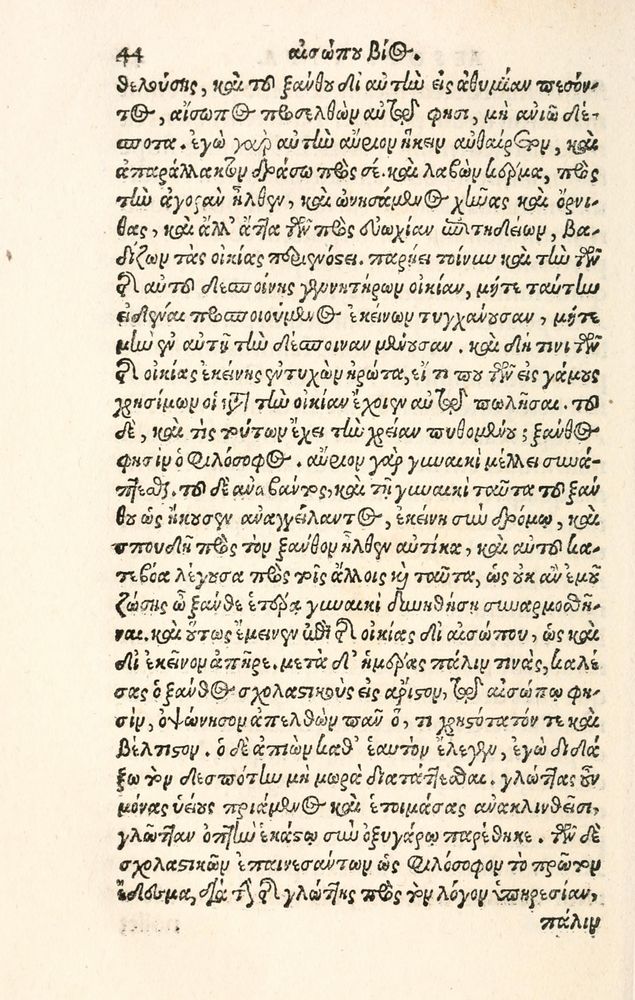 44 αἰσώπου βίος.
θελούσης, καὶ τοῦ ξάνθου δι᾽ αὐτὴν εἰς ἀθυμίαν πεσόν-
τος, αἴσωπος προσελθὼν αὐτῷ φησι, μὴ ἀνιῶ δέ-
σποτα. ἐγὼ γὰρ αὐτὴν αὔριον ἥκειν αὐθαίρετον, καὶ
ἀπαράλλακτον δράσω πρός σε. καὶ λαβὼν κέρμα, πρὸς
τὴν ἀγορὰν ἦλθεν, καὶ ὠνησάμενος χῆνας καὶ ὄρνι-
θας, καὶ ἄλλ᾽ ἄττα τῶν πρὸς εὐωχίαν ἐπιτηδείων, βα-
δίζων τὰς οἰκίας περιῄει. παρῄει τοίνυν καὶ τὴν τῶν
τῆς αὐτοῦ δεσποίνης γεννητόρων οἰκίαν, μήτε ταύτην
εἰδέναι προσποιούμενος ἐκείνων τυγχάνουσαν, μήτε
μὴν ἐν αὐτῇ τὴν δέσποιναν μένουσαν. καὶ δή τινι τῶν
τῆς οἰκίας ἐκείνης ἐντυχὼν ἠρώτα, εἴ τι που τῶν εἰς γάμους
χρησίμων οἱ κατὰ τὴν οἰκίαν ἔχοιεν αὐτῷ πωλῆσαι. τοῦ
δὲ, καὶ τίς τούτων ἔχει τὴν χρείαν πυθομένου; ξάνθος
φησὶν ὁ φιλόσοφος. αὔριον γὰρ γυναικὶ μέλλει συνά-
πτεσθαι. τοῦ δὲ ἀναβάντος, καὶ τῇ γυναικὶ ταῦτα τοῦ ξάν
θου ὡς ἤκουσεν ἀναγγείλαντος, ἐκείνη σὺν δρόμῳ, καὶ
σπουδῇ πρὸς τὸν ξάνθον ἦλθεν αὐτίκα, καὶ αὐτοῦ κα-
τεβόα λέγουσα πρὸς τοῖς ἄλλοις καὶ ταῦτα, ὡς οὐκ ἂν ἐμοῦ
ζώσης ὦ ξάνθε ἑτέρᾳ γυναικὶ δυνηθήσῃ συναρμοσθῆ-
ναι. καὶ οὕτως ἔμεινεν ἐπὶ τῆς οἰκίας δι᾽ αἰσώπου, ὡς καὶ
δι᾽ ἐκεῖνον ἀπῆρε. μετὰ δ᾽ ἡμέρας πάλιν τινὰς, καλέ
σας ὁ ξάνθος σχολαστικοὺς εἰς ἄριστον, τῷ αἰσώπῳ φη-
σὶν, ὀψώνησον ἀπελθὼν πᾶν ὅ, τι χρηστότατόν τε καὶ
βέλτιστον. ὁ δὲ ἀπιὼν καθ᾽ ἑαυτὸν ἔλεγεν, ἐγὼ διδά
ξω τὸν δεσπότην μὴ μωρὰ διατάττεσθαι. γλώττας οὖν
μόνας ὑείους πριάμενος καὶ ἑτοιμάσας ἀνακλινθεῖσι,
γλῶτταν ὀπτὴν ἑκάστῳ σὺν ὀξυγάρῳ παρέθηκε. τῶν δὲ
σχολαστικῶν ἐπαινεσάντων ὡς φιλόσοφον τὸ πρῶτον
ἔδεσμα, διὰ τὴν τῆς γλώττης πρὸς τὸν λόγον ὑπηρεσίαν,
πάλιν